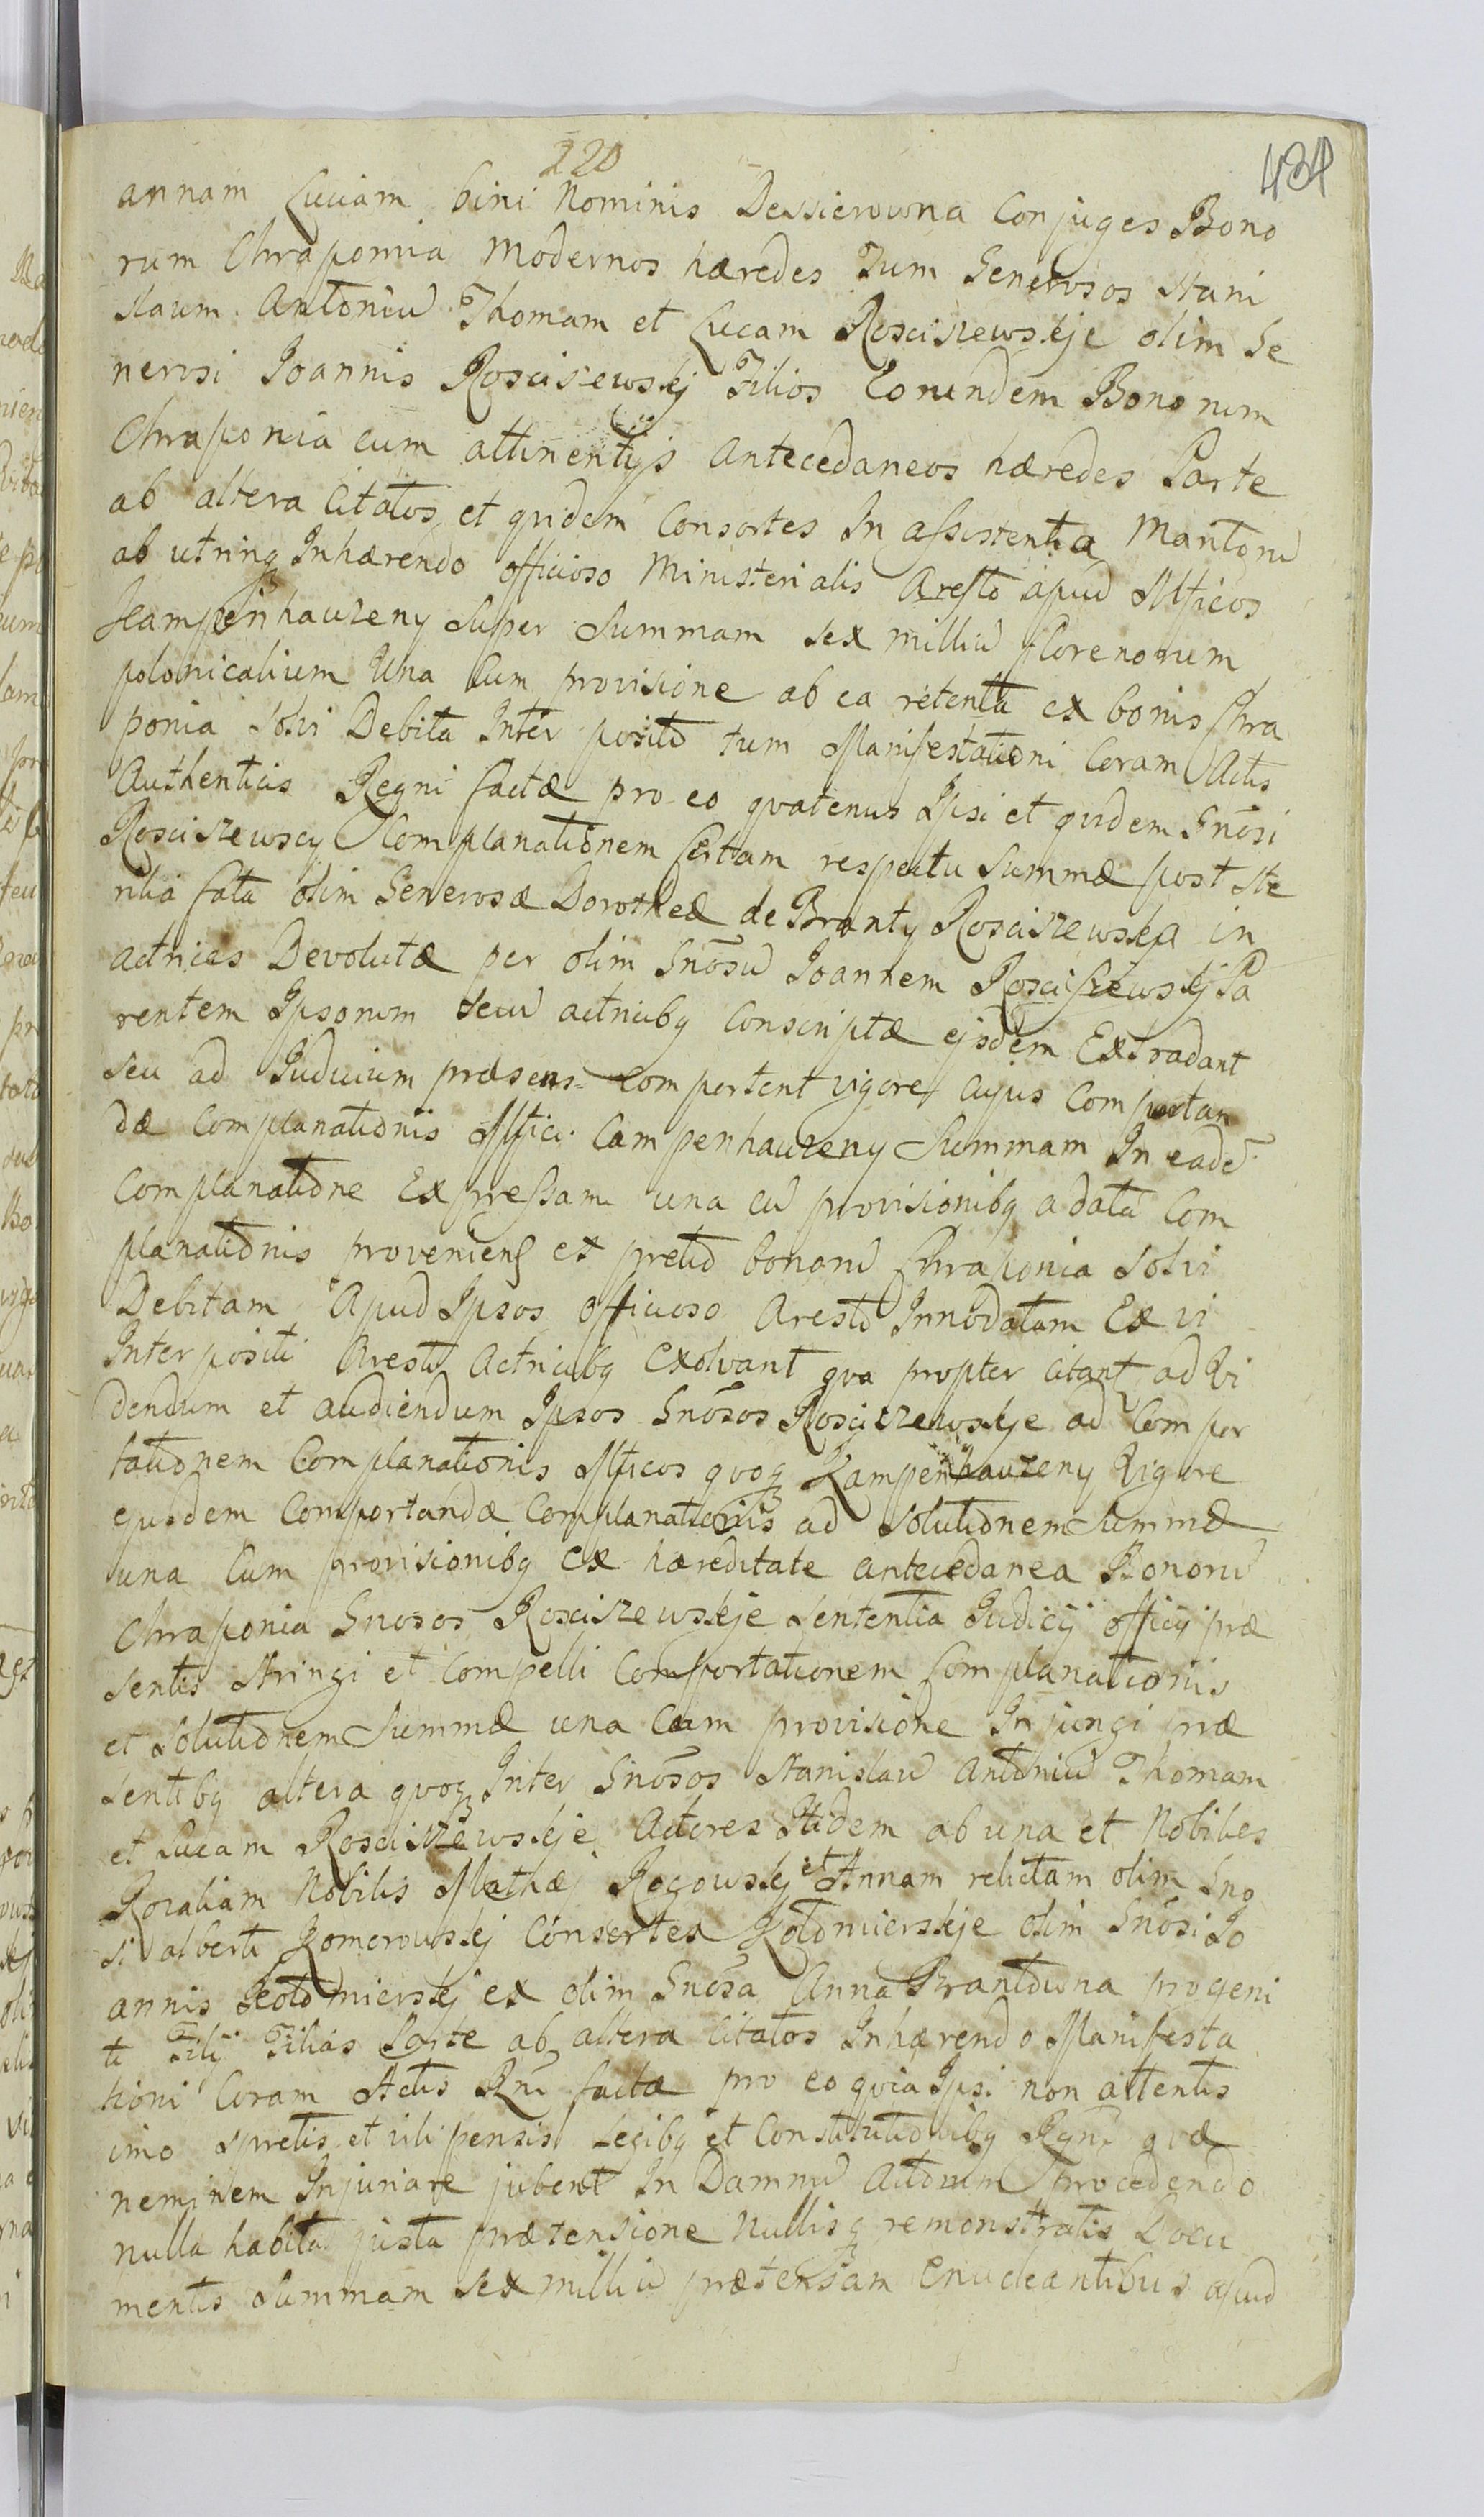 220
434
annam Luciam bini Nominis Dessierowna Conjuges Bono
rum Chraponia Modernos hæredes Tum Generosos Stani
slaum Antoniū Thomam et Lucam Rosciszewskje olim Ge
nerosi Joannis Rosciszewskj Filios Eorundem Bonorum
Chraponia cum attinentijs antecedaneos hæredes Parte
ab altera Citatos et quidem Consortes In assistentia Maritorū
ab utrinq Inhærendo officioso Ministerialis Aresto apud Mficos
Kampenhauzeny Super Summam sex milliū florenorum
polonicalium Una Cum provisione ab ea retenta ex bonis Chra
ponia Solvi Debita Inter posito tum Manifestationi Coram Actis
Authenticis Regni factæ pro eo quatenus Ipsi et quidem Gnōsi
Rosciszewscy Complanationem Certam respectu Summæ post ste
rilia fata olim Generosæ Dorotheæ de Branty Rosciszewska in
actrices Devolutæ per olim Gnōsū Joannem Rosciszewskj Pa
rentem Ipsorum secū actricibq Conscriptæ ejsdem Extradant
seu ad Judicium præsens Comportent vigore Cujus Comportan
dæ Complanationis Mfici Campenhauzeny Summam In eadē
Complanatione Expressam una cū provisionibq a data Com
planationis proveniens ex pretio bonorū Chraponia Solvi
Debitam Apud Ipsos Officioso Aresto Innodatam Ex vi
Interpositi Aresti Actricibq Exolvant qua propter Citant ad Vi
dendum et audiendum Ipsos Gnōsos Rosciszewskje ad Compor
tationem Complanationis Mficos quoq Kampenhauzeny Vigore
ejusdem Comportandæ Complanationis ad Solutionem Summæ
una Cum provisionibq ex hæreditate antecedanea Bonorū
Chraponia Gnosos Rosciszewskje Sententia Judicij officij præ
sentis Stringi et Compelli Comportationem Complanationis
et Solutionem Summæ una Cum provisione Injungi præ
sentibq altera quoq Inter Gnōsos Stanislaū Antoniū Thomam
et Lucam Rosciszewskje Actores Itidem ab una et Nobiles
Rozaliam Nobilis Mathæj Rogowskj et Annam relictam olim Gno
si alberti Komorowskj Consortes Kołomierskje olim Gnōsi Jo
annis Kołomierskj ex olim Gnōsa Anna Brantowna progeni
ti Filij Filias Parte ab altera Citatos Inhærendo Manifesta
tioni Coram Actis Rni factæ pro eo quia Ipsi non attentis
imo spretis et vili pensis Legibq et Constitutionibq Rgni quæ
neminem Injuriare jubent In Damnū Actorum procedendo
nulla habita justa prætensione Nullisq remonstratis Docu
mentis Summam sex milliū prætensam Enucleantibus apud